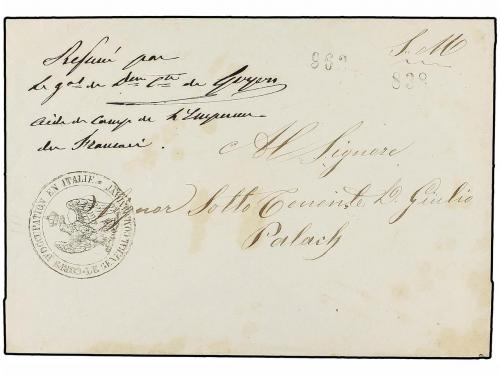 Refusé par
Le g^al de Don Cte de Goyon
aide de Camp de l'Empereur
des Francais.
S. M
862
838
Al Signore
Signor Sotto Tenente D. Giulio
Palach
CORPS D'OCCUPATION EN ITALIE * LE GÉNÉRAL